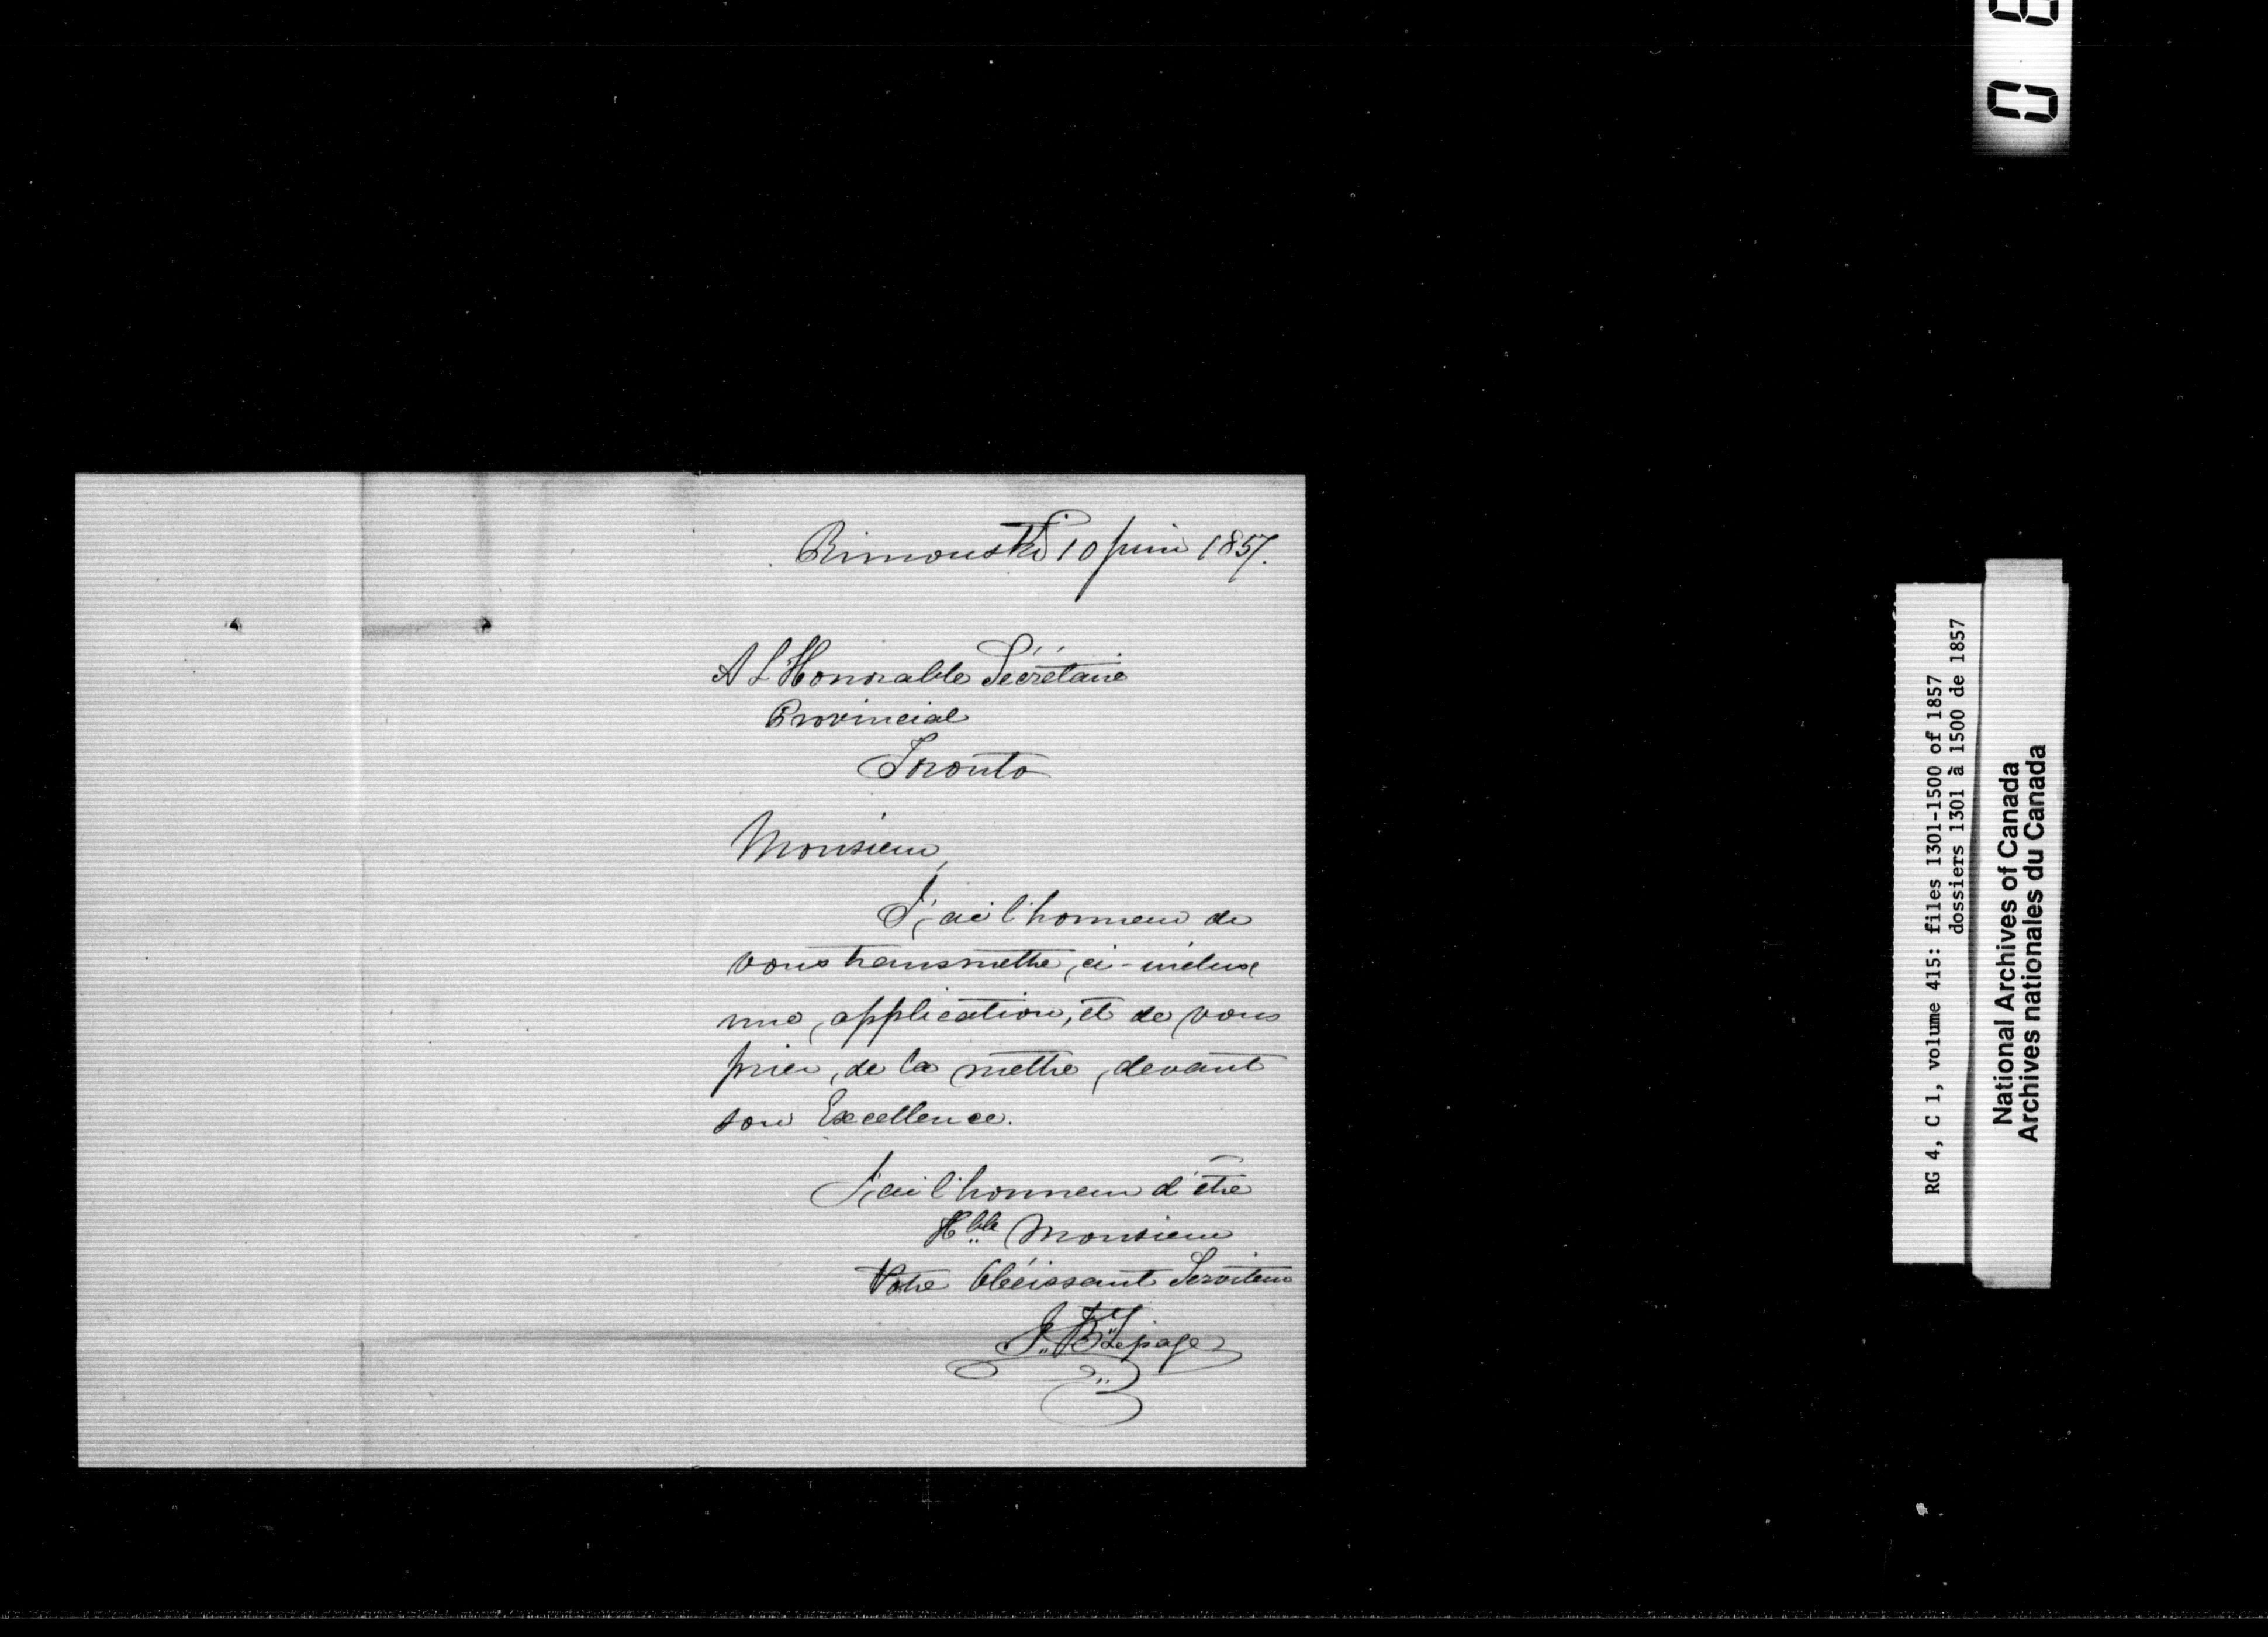 Rimouski 10 Juin 1857.
A L'Honorable Sécrétaire
Provincial
Toronto
Monsieur,
J'ai l'honneur de
vous transmettre, ci-incluse
une, application, et de vous
prier, de la mettre, devant
son Excellence.
J'ai l'honneur d'être
Hble Monsieur
Votre Obéissant Serviteur
J. Bte Lepage
RG 4, C 1, volume 415: files 1301-1500 of 1857
dossiers 1301 à 1500 de 1857
National Archives of Canada
Archives nationales du Canada